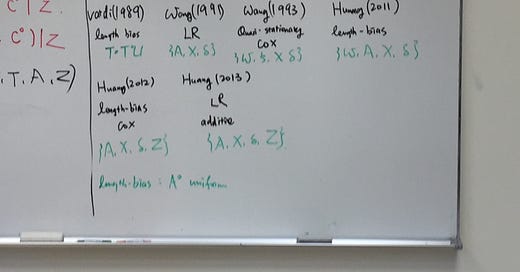 C | Z.
C°) | Z
, T, A, Z)
Vardi (1989) Wang (1991) Wang (1993) Huang (2011)
length bias LR Quasi-stationary length-bias
{A, X, δ} COX {W, A, X, δ}
Huang (2012) Huang (2013)
length-bias LR
COX additive
{A, X, δ, Z} {A, X, δ, Z}
length-bias : A° uniform